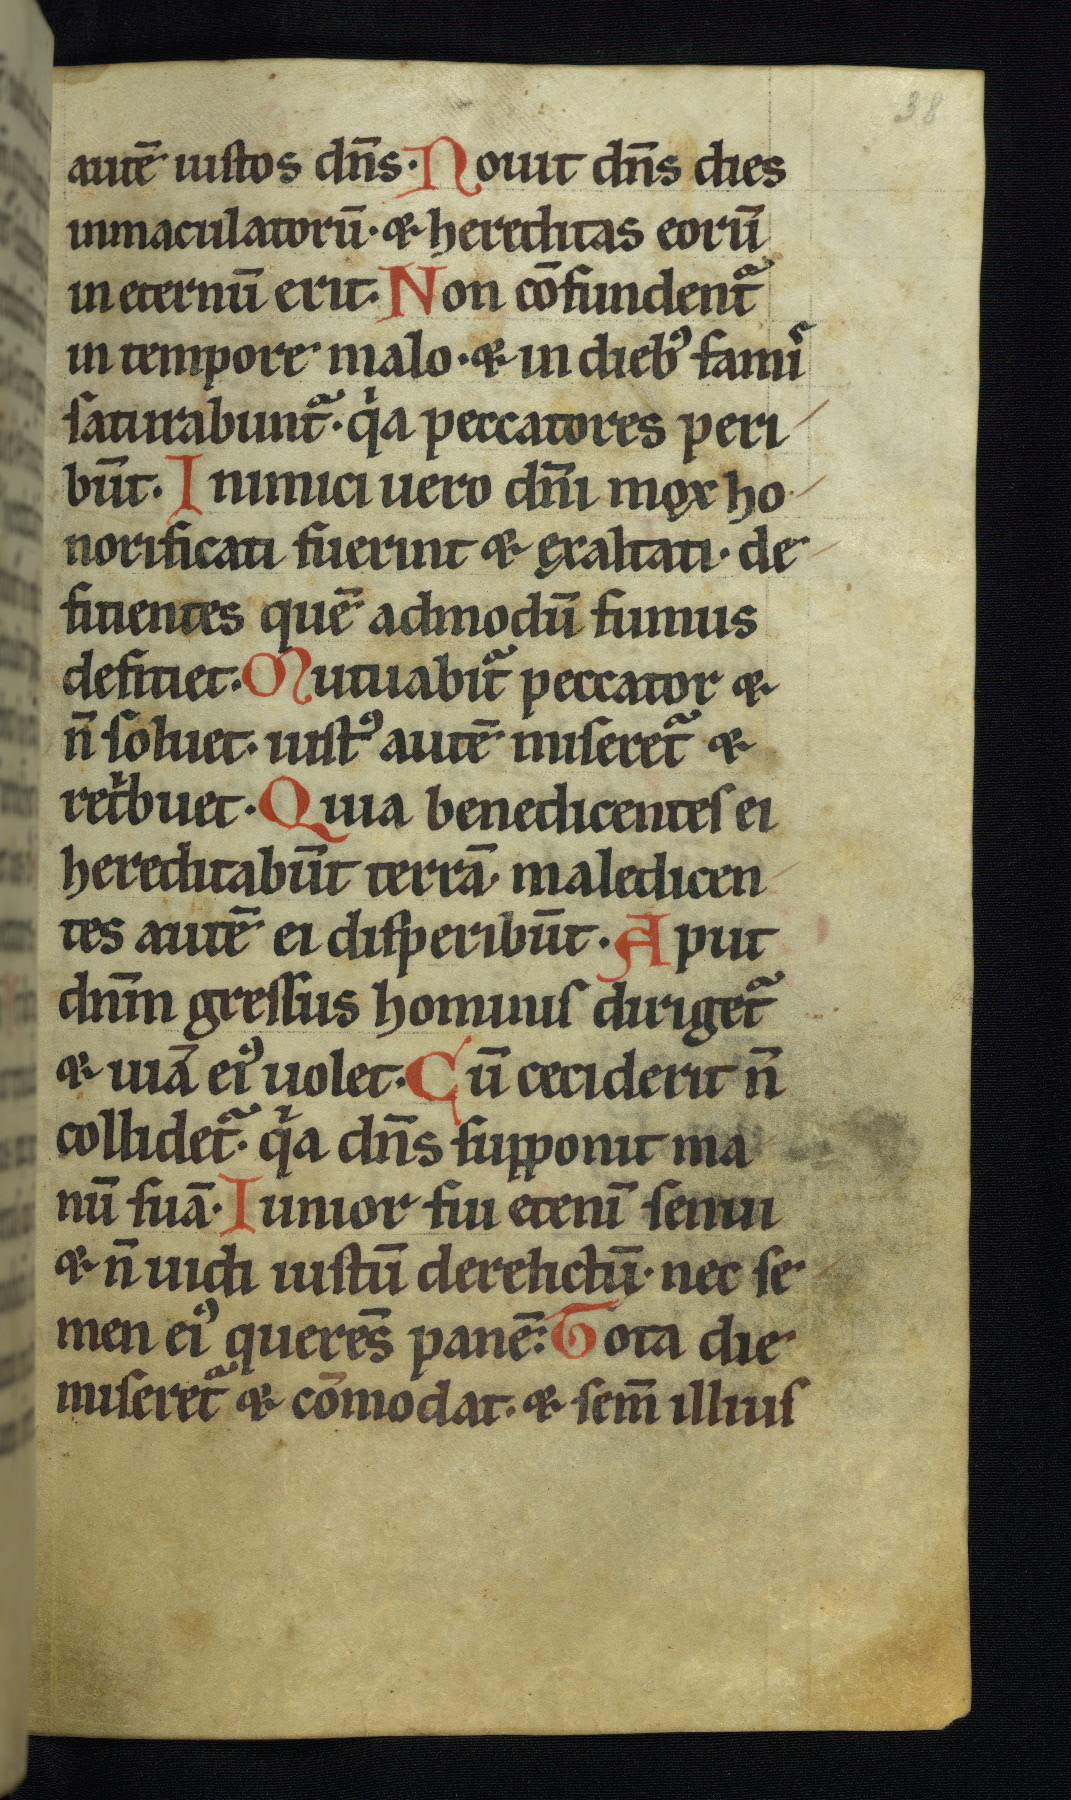 38
autē iustos dn̄s· Nouit dn̄s dies
inmaculatorū· & hereditas eorū
in eternū erit· Non cōfundentᷓ
in tempore malo· & in dieb᾽ famıˢ
saturabuntᷓ· qͥa peccatores peri
būt· Inimici uero dn̄i mox ho
norificati fuerint & exaltati· de
fitientes quē admodū fumus
defitiet· Mutuabitᷓ peccator &
n̄ soluet· iust᾽ autē miseretᷓ &
retͥbuet· Quia benedicentes ei
hereditabūt terrā· maledicen
tes autē ei disperibūt· Aput
dnm̄ gressus hominis dirigetᷓ
& uiā ei᾽ uolet· Cū ceciderit n̄
collidetᷓ· qͥa dn̄s supponit ma
nū suā· Iunior fui etenī senui
& n̄ uidi iustū derelictū· nec se
men ei᾽ querēs panē: Tota die
miseretᷓ & cōmodat· & sem̄ illius